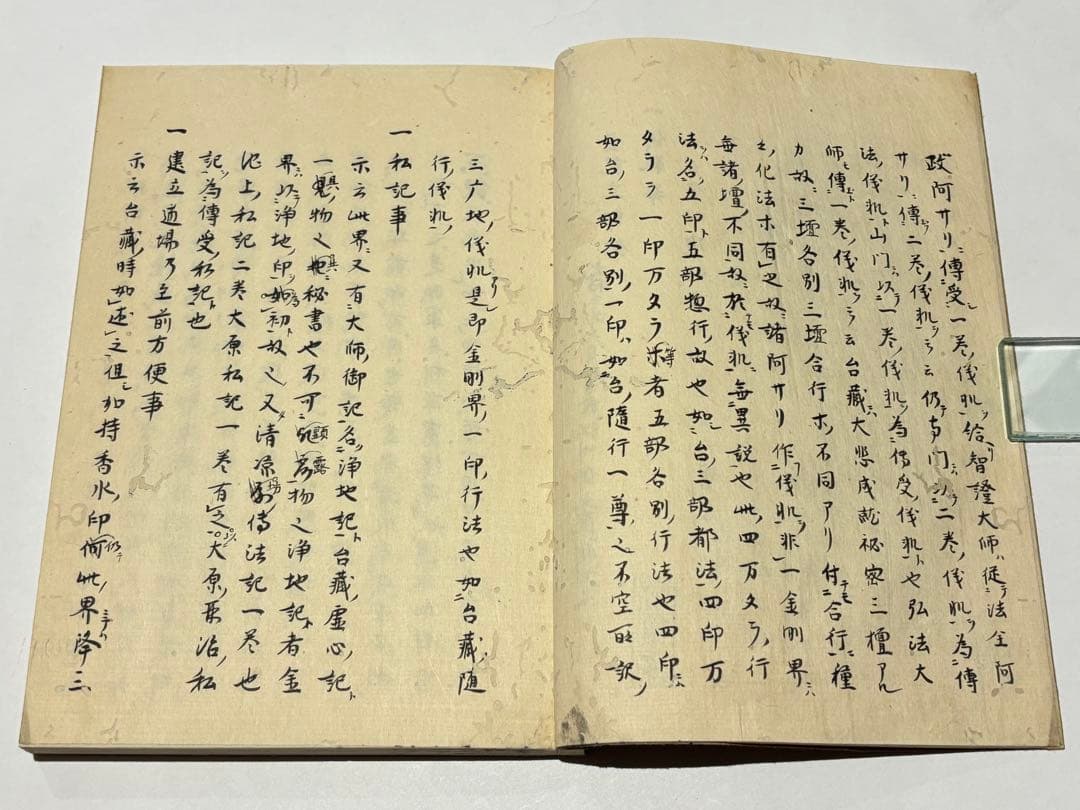 政阿サリニ傳受シ一巻ノ儀軌ヲ給ヘリ智證大師ハ従テ法全阿
サリニ傳二巻ノ儀軌ヲ云仍寺門ニハ以二巻ノ儀軌ヲ為傳
法ノ儀軌ト山門ニハ以一巻ノ儀軌ヲ為傳受ノ儀軌ト也弘法大
師モ傳一巻ノ儀軌ヲ云台藏ニハ大悲成就祕密三檀アル
カ故ニ三壇各別三壇合行ホノ不同アリ付テモ合行ニ種
之ノ化法ホ有之故ニ諸阿サリ作儀軌ヲ非一金剛界ニハ
毎諸壇ノ不同故ニ於テモ儀軌ニ毎異説也此ノ四万タラノ行
法ノ名ハ五印ト五部惣行ノ故也如台ノ三部都法ノ四印万
タラ一印万タラホ者五部各別ノ行法也四印ニハ
如台ノ三部各別ノ一印ハ如台ノ隨行一尊ノ之不空所訳ノ
三广地ノ儀軌是即金剛界ノ一印ノ行法也如台藏ノ隨
行ノ儀軌ノ
一 私記事
示云此界ニ又有大師ノ御記名ク浄地記ト台藏ノ虚心ノ記ト
一具ノ物之秘書也不可顕露ノ物之浄地記ト者金
界ニハ以浄地ノ印ヲ為初ト故之又清凉房ノ傳法記一巻也
池上ノ私記二巻大原私記一巻有之大原ノ聚沾ノ私
記ヲ為傳受ノ私記ト也
一 建立道場乃至前方便事
示云台藏ノ時如述之但シ加持香水ノ印仍テ此ノ界ニハ降三